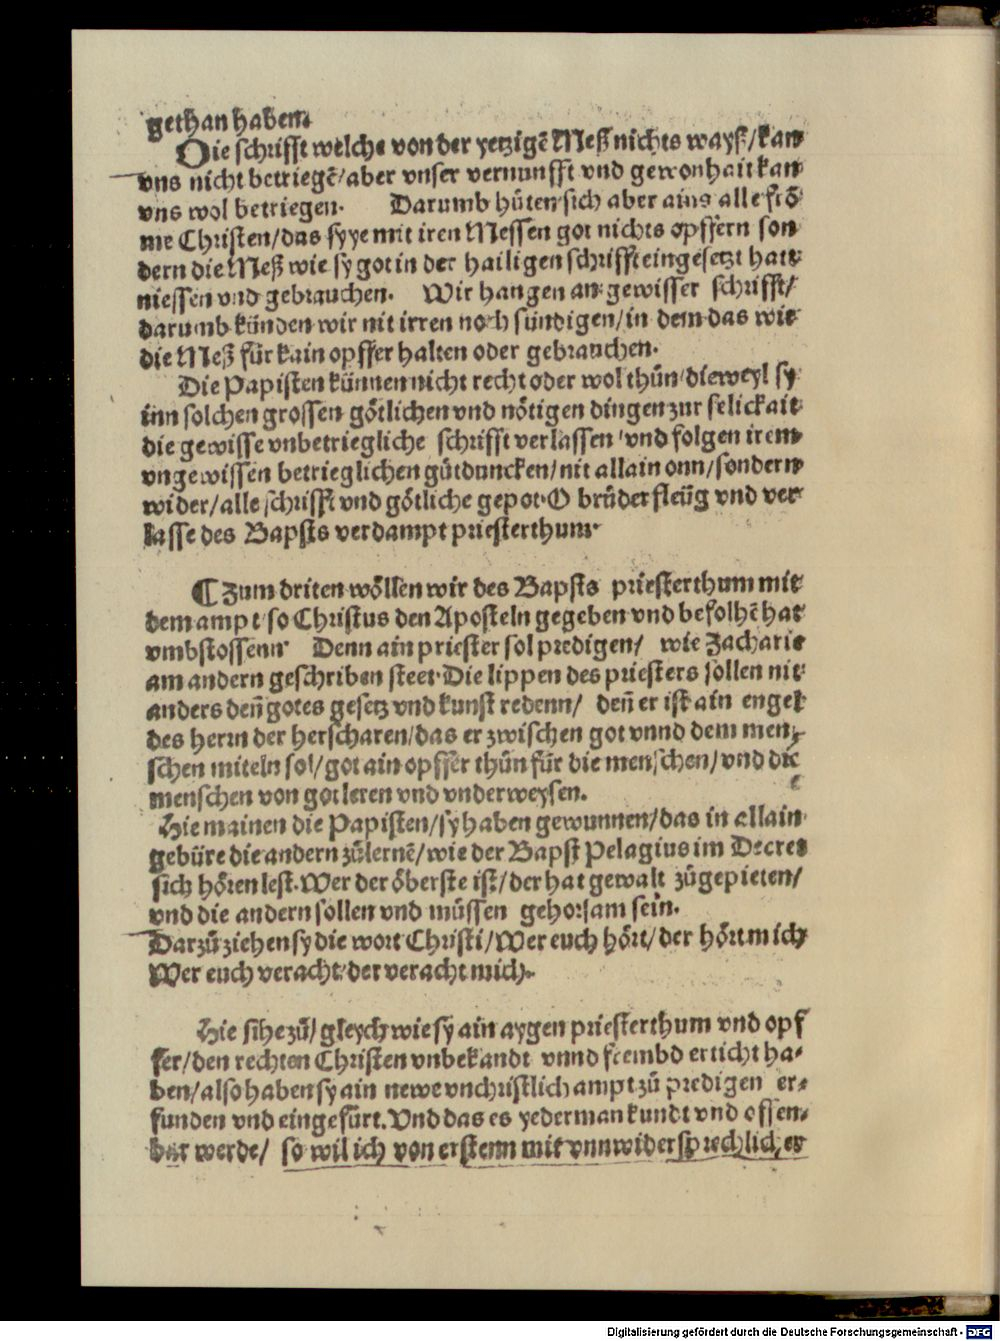 gethan haben.
Die schrifft welche von der yetzigē Meß nichts wayß/kan
vns nicht betriegē/aber vnser vernunfft vnd gewonhait kan
vns wol betriegen. Darumb hüten sich aber ains alle frō
me Christen/das sy ye mit iren Messen got nichts opffern son
dern die Meß wie sy got in der hailigen schrifft eingesetzt hatt
niessen vnd gebrauchen. Wir hangen an gewisser schrifft/
darumb künden wir nit irren noch sündigen/in dem das wir
die Meß für kain opffer halten oder gebrauchen.
Die Papisten künnen nicht recht oder wol thůn/dieweyl sy
inn solchen grossen götlichen vnd nötigen dingen zur selickait
die gewisse vnbetriegliche schrifft verlassen/vnd folgen irem
vngewissen betrieglichen gůtduncken/nit allain onn/sondern
wider/alle schrifft vnd götliche gepot. O brůder fleüg vnd ver
lasse des Bapsts verdampt priesterthum.
¶ Zum driten wöllen wir des Bapsts priesterthum mit
dem ampt/so Christus den Aposteln gegeben vnd befolhē hat
vmbstossenn Denn ain priester sol predigen/ wie Zacharie
am andern geschriben steet. Die lippen des priesters sollen nit
anders deñ gotes gesetz vnd kunst redenn/ deñ er ist ain engel
des herrn der herscharen/das er zwischen got vnnd dem men⸗
schen miteln sol/got ain opffer thůn für die menschen/vnd die
menschen von got leren vnd vnderweysen.
Hie mainen die Papisten/sy haben gewunnen/das in allain
gebüre die andern zůlernē/wie der Bapst Pelagius im Decret
sich hören lest. Wer der öberste ist/der hat gewalt zůgepieten/
vnd die andern sollen vnd müssen gehorsam sein.
Darzů ziehen sy die wort Christi/Wer euch hört/der hört mich
Wer euch veracht/der veracht mich.
Hie sihe zů/gleych wie sy ain aygen priesterthum vnd opf
fer/den rechten Christen vnbekandt vnnd frembd erticht ha⸗
ben/also haben sy ain newe vnchristlich ampt zů predigen er⸗
funden vnd eingefürt. Vnd das es yederman kundt vnd offen⸗
bar werde/ so wil ich von erstenn mit vnnwidersprechlicher
Digitalisierung gefördert durch die Deutsche Forschungsgemeinschaft - DFG